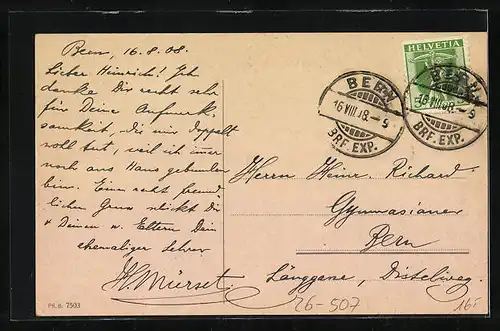 Bern, 16. 8. 08.
Lieber Heinrich! Ich
danke Dir recht sehr
für Deine Aufmerk-
samkeit, die mir doppelt
woll tut, weil ich immer
noch ans Haus gebunden
bin. Einen recht freund-
lichen Gruss schickt Dir
& Deinen w. Eltern Dein
ehemaliger Lehrer
H. Mürset.
HELVETIA
BERN
16 VIII 08. – 9
BRF. EXP.
BERN
16 VIII 08. – 9
BRF. EXP.
Herrn Heinr. Richard
Gymnasianer
Bern
Länggasse, Distelweg.
26-507
16F
Ph. B. 7503